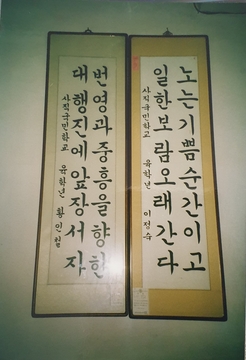 노는기쁨순간이고
일한보람오래간다
사직국민학교 육학년 이정수
번영과중흥을향한
대행진에앞장서자
사직국민학교 육학년